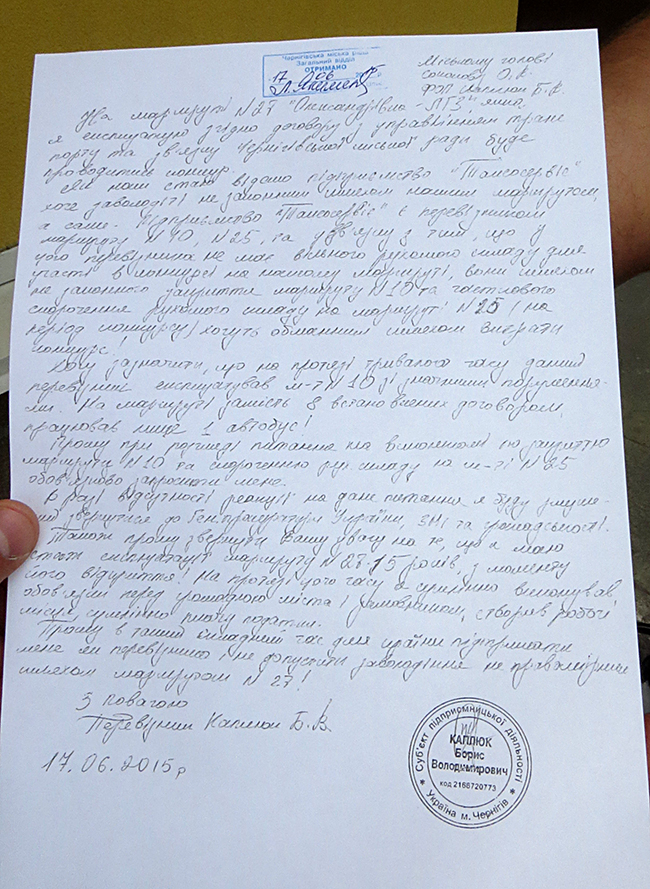 Чернігівська міська рада
Загальний відділ
ОТРИМАНО
17 06
Міському голові
Соколову О.В.
ФЛП Каплюк Б.В.
На маршруті №27 "Олександрівка - ЛТЗ" який
я експлуатую згідно договору з управлінням транс
порту та зв'язку Чернігівської міської ради буде
проводитись конкурс.
Як нам стало відомо підприємство "Талосервіс"
хоче заволодіти не законним шляхом нашим маршрутом,
а саме. Підприємство "Талосервіс" є перевізником
маршруту №10, №25, та у зв'язку з тим, що у
цого перевізника не має вільного рухомого складу для
участі в конкурсі на нашому маршруті, вони шляхом
не законного закриття маршруту №10 та часткового
скорочення рухомого складу на маршруті №25 (на
період конкурсу) хочуть обманним шляхом виграти
конкурс!
Хочу зазначити, що на протязі тривалого часу даний
перевізник експлуатував м-т №10 зі значними порушення-
ми. На маршруті замість 8 встановлених договором,
працював лише 1 автобус!
Прошу при розгляді питання на виконкомі по закриттю
маршруту №10 та скороченню рух. складу на м-ті №25
обов'язково запросити мене.
В разі відсутності реакції на дане питання я буду змуше-
ний звернутися до Ген. прокуратури України, ЗМІ та громадськості.
Також прошу звернути Вашу увагу на те, що я маю
стаж експлуатації маршруту №27 - 15 років, з моменту
його відкриття! На протязі цого часу я сумлінно виконував
обов'язки перед громадою міста і виконкомом, створив робочі
місця, сумлінно плачу податки.
Прошу в такий складний час для країни підтримати
мене як перевізника і не допустити заволодіння не правомірним
шляхом маршрутом №27!
З повагою
Перевізник Каплюк Б.В.
17.06.2015р
Суб'єкт підприємницької діяльності
КАПЛЮК
Борис
Володимирович
код 2166720773
* Україна м. Чернігів *